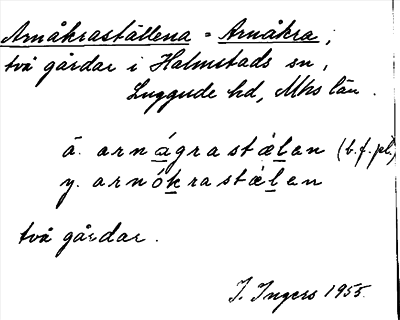 Arnåkraställena = Arnåkra,
två gårdar i Halmstads sn,
Luggude hd, Mhs län.
ä. arnágrastælen (b.f.pl.)
y. arnókrastælen
två gårdar.
I. Ingers 1955.